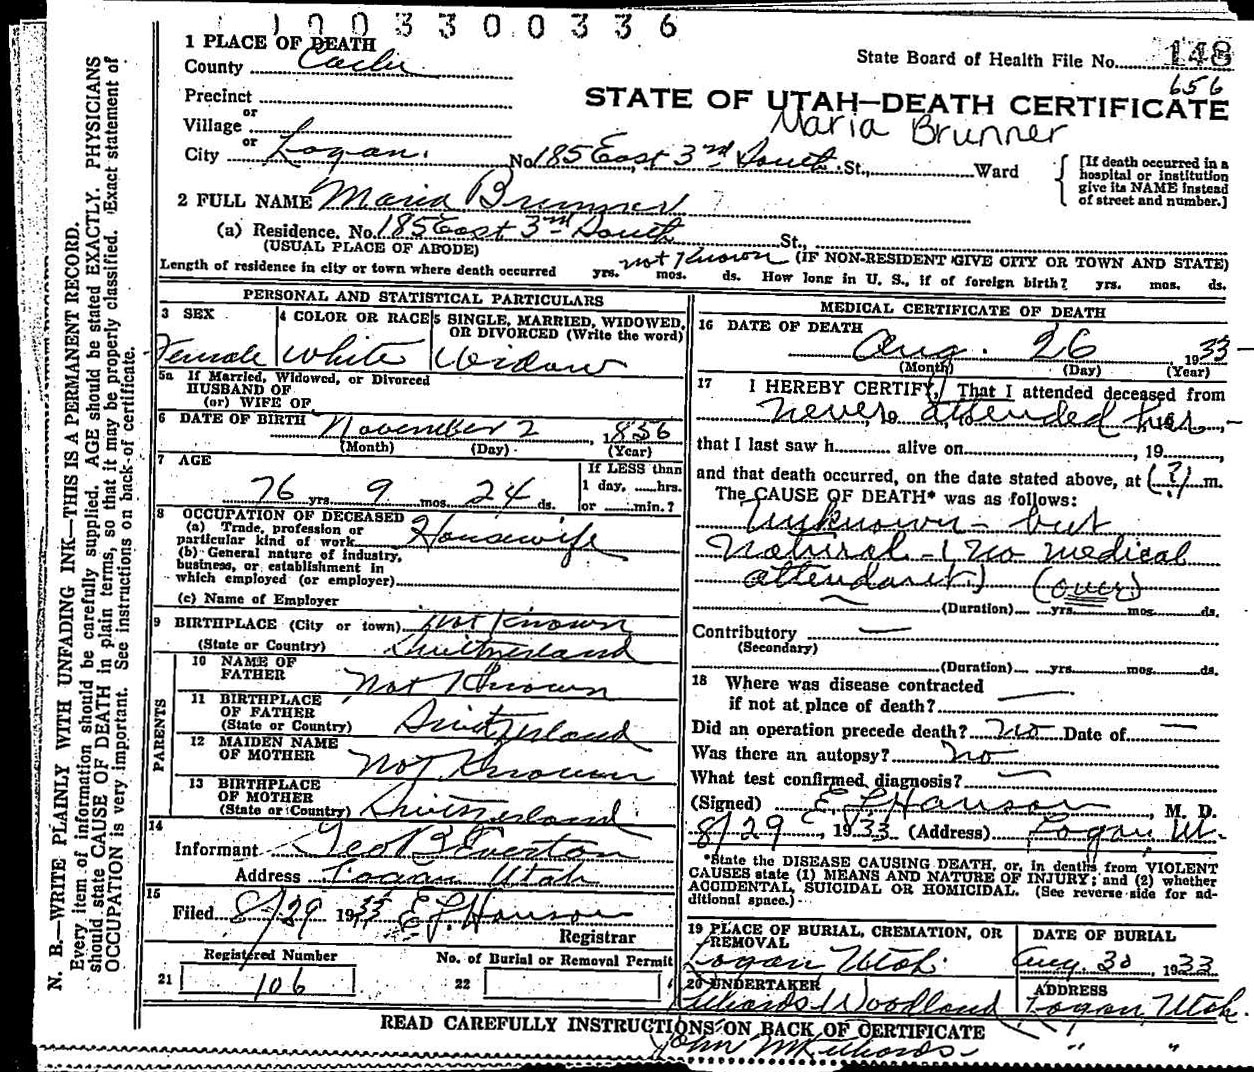 1 0 0 3 3 0 0 3 3 6
1 PLACE OF DEATH
County Cache
State Board of Health File No. 148
656
Precinct
or
Village
or
STATE OF UTAH—DEATH CERTIFICATE
Maria Brunner
City Logan. No. 185 East 3rd South St., Ward
[If death occurred in a hospital or institution give its NAME instead of street and number.]
2 FULL NAME Maria Brunner
(a) Residence. No. 185 East 3rd South St.,
(USUAL PLACE OF ABODE) (IF NON-RESIDENT GIVE CITY OR TOWN AND STATE)
Length of residence in city or town where death occurred yrs. not Known mos. ds. How long in U. S., if of foreign birth? yrs. mos. ds.
PERSONAL AND STATISTICAL PARTICULARS
3 SEX
Female
4 COLOR OR RACE
White
5 SINGLE, MARRIED, WIDOWED, OR DIVORCED (Write the word)
Widow
5a If Married, Widowed, or Divorced
HUSBAND OF
(or) WIFE OF
6 DATE OF BIRTH November 2, 1856
(Month) (Day) (Year)
7 AGE
76 yrs. 9 mos. 24 ds.
If LESS than
1 day, ......hrs.
or ......min.?
8 OCCUPATION OF DECEASED
(a) Trade, profession or
particular kind of work Housewife
(b) General nature of industry,
business, or establishment in
which employed (or employer)
(c) Name of Employer
9 BIRTHPLACE (City or town) not Known
(State or Country) Switzerland
PARENTS
10 NAME OF FATHER Not Known
11 BIRTHPLACE OF FATHER
(State or Country) Switzerland
12 MAIDEN NAME OF MOTHER Not Known
13 BIRTHPLACE OF MOTHER
(State or Country) Switzerland
14
Informant Geo B Everton
Address Logan Utah
15
Filed 8/29 1933 E. L. Hanson
Registrar
Registered Number
21 106
No. of Burial or Removal Permit
22
MEDICAL CERTIFICATE OF DEATH
16 DATE OF DEATH
Aug. 26, 1933
(Month) (Day) (Year)
17 I HEREBY CERTIFY, That I attended deceased from
never attended her
that I last saw h........ alive on........, 19......,
and that death occurred, on the date stated above, at (?) m.
The CAUSE OF DEATH* was as follows:
Unknown - but
Natural - (no medical
attendant.) (over)
(Duration) yrs. mos. ds.
Contributory —
(Secondary)
(Duration) yrs. mos. ds.
18 Where was disease contracted
if not at place of death? —
Did an operation precede death? no Date of —
Was there an autopsy? no
What test confirmed diagnosis? —
(Signed) E. L. Hanson, M. D.
8/29, 1933 (Address) Logan, Ut.
*State the DISEASE CAUSING DEATH, or, in deaths from VIOLENT
CAUSES state (1) MEANS AND NATURE OF INJURY; and (2) whether
ACCIDENTAL, SUICIDAL OR HOMICIDAL. (See reverse side for ad-
ditional space.)
19 PLACE OF BURIAL, CREMATION, OR REMOVAL
Logan, Utah.
DATE OF BURIAL
Aug. 30, 1933
20 UNDERTAKER
Woodland
ADDRESS
Logan, Utah.
READ CAREFULLY INSTRUCTIONS ON BACK OF CERTIFICATE
John " "
N. B.—WRITE PLAINLY WITH UNFADING INK—THIS IS A PERMANENT RECORD.
Every item of information should be carefully supplied. AGE should be stated EXACTLY. PHYSICIANS
should state CAUSE OF DEATH in plain terms, so that it may be properly classified. Exact statement of
OCCUPATION is very important. See instructions on back of certificate.